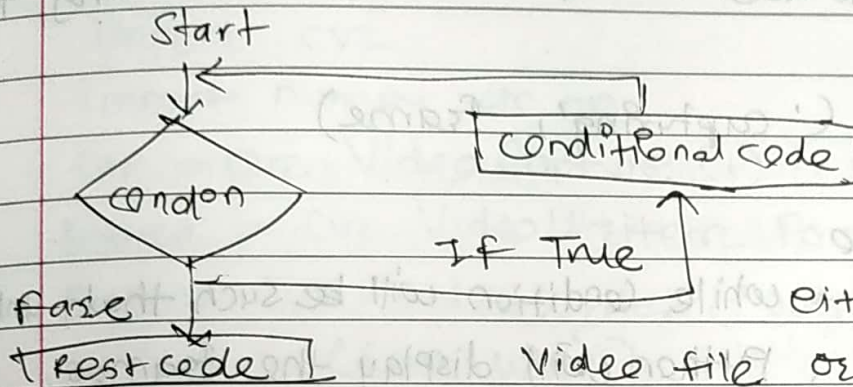 Start
conditional code
condon
If True
fase eit
Rest code Video file or